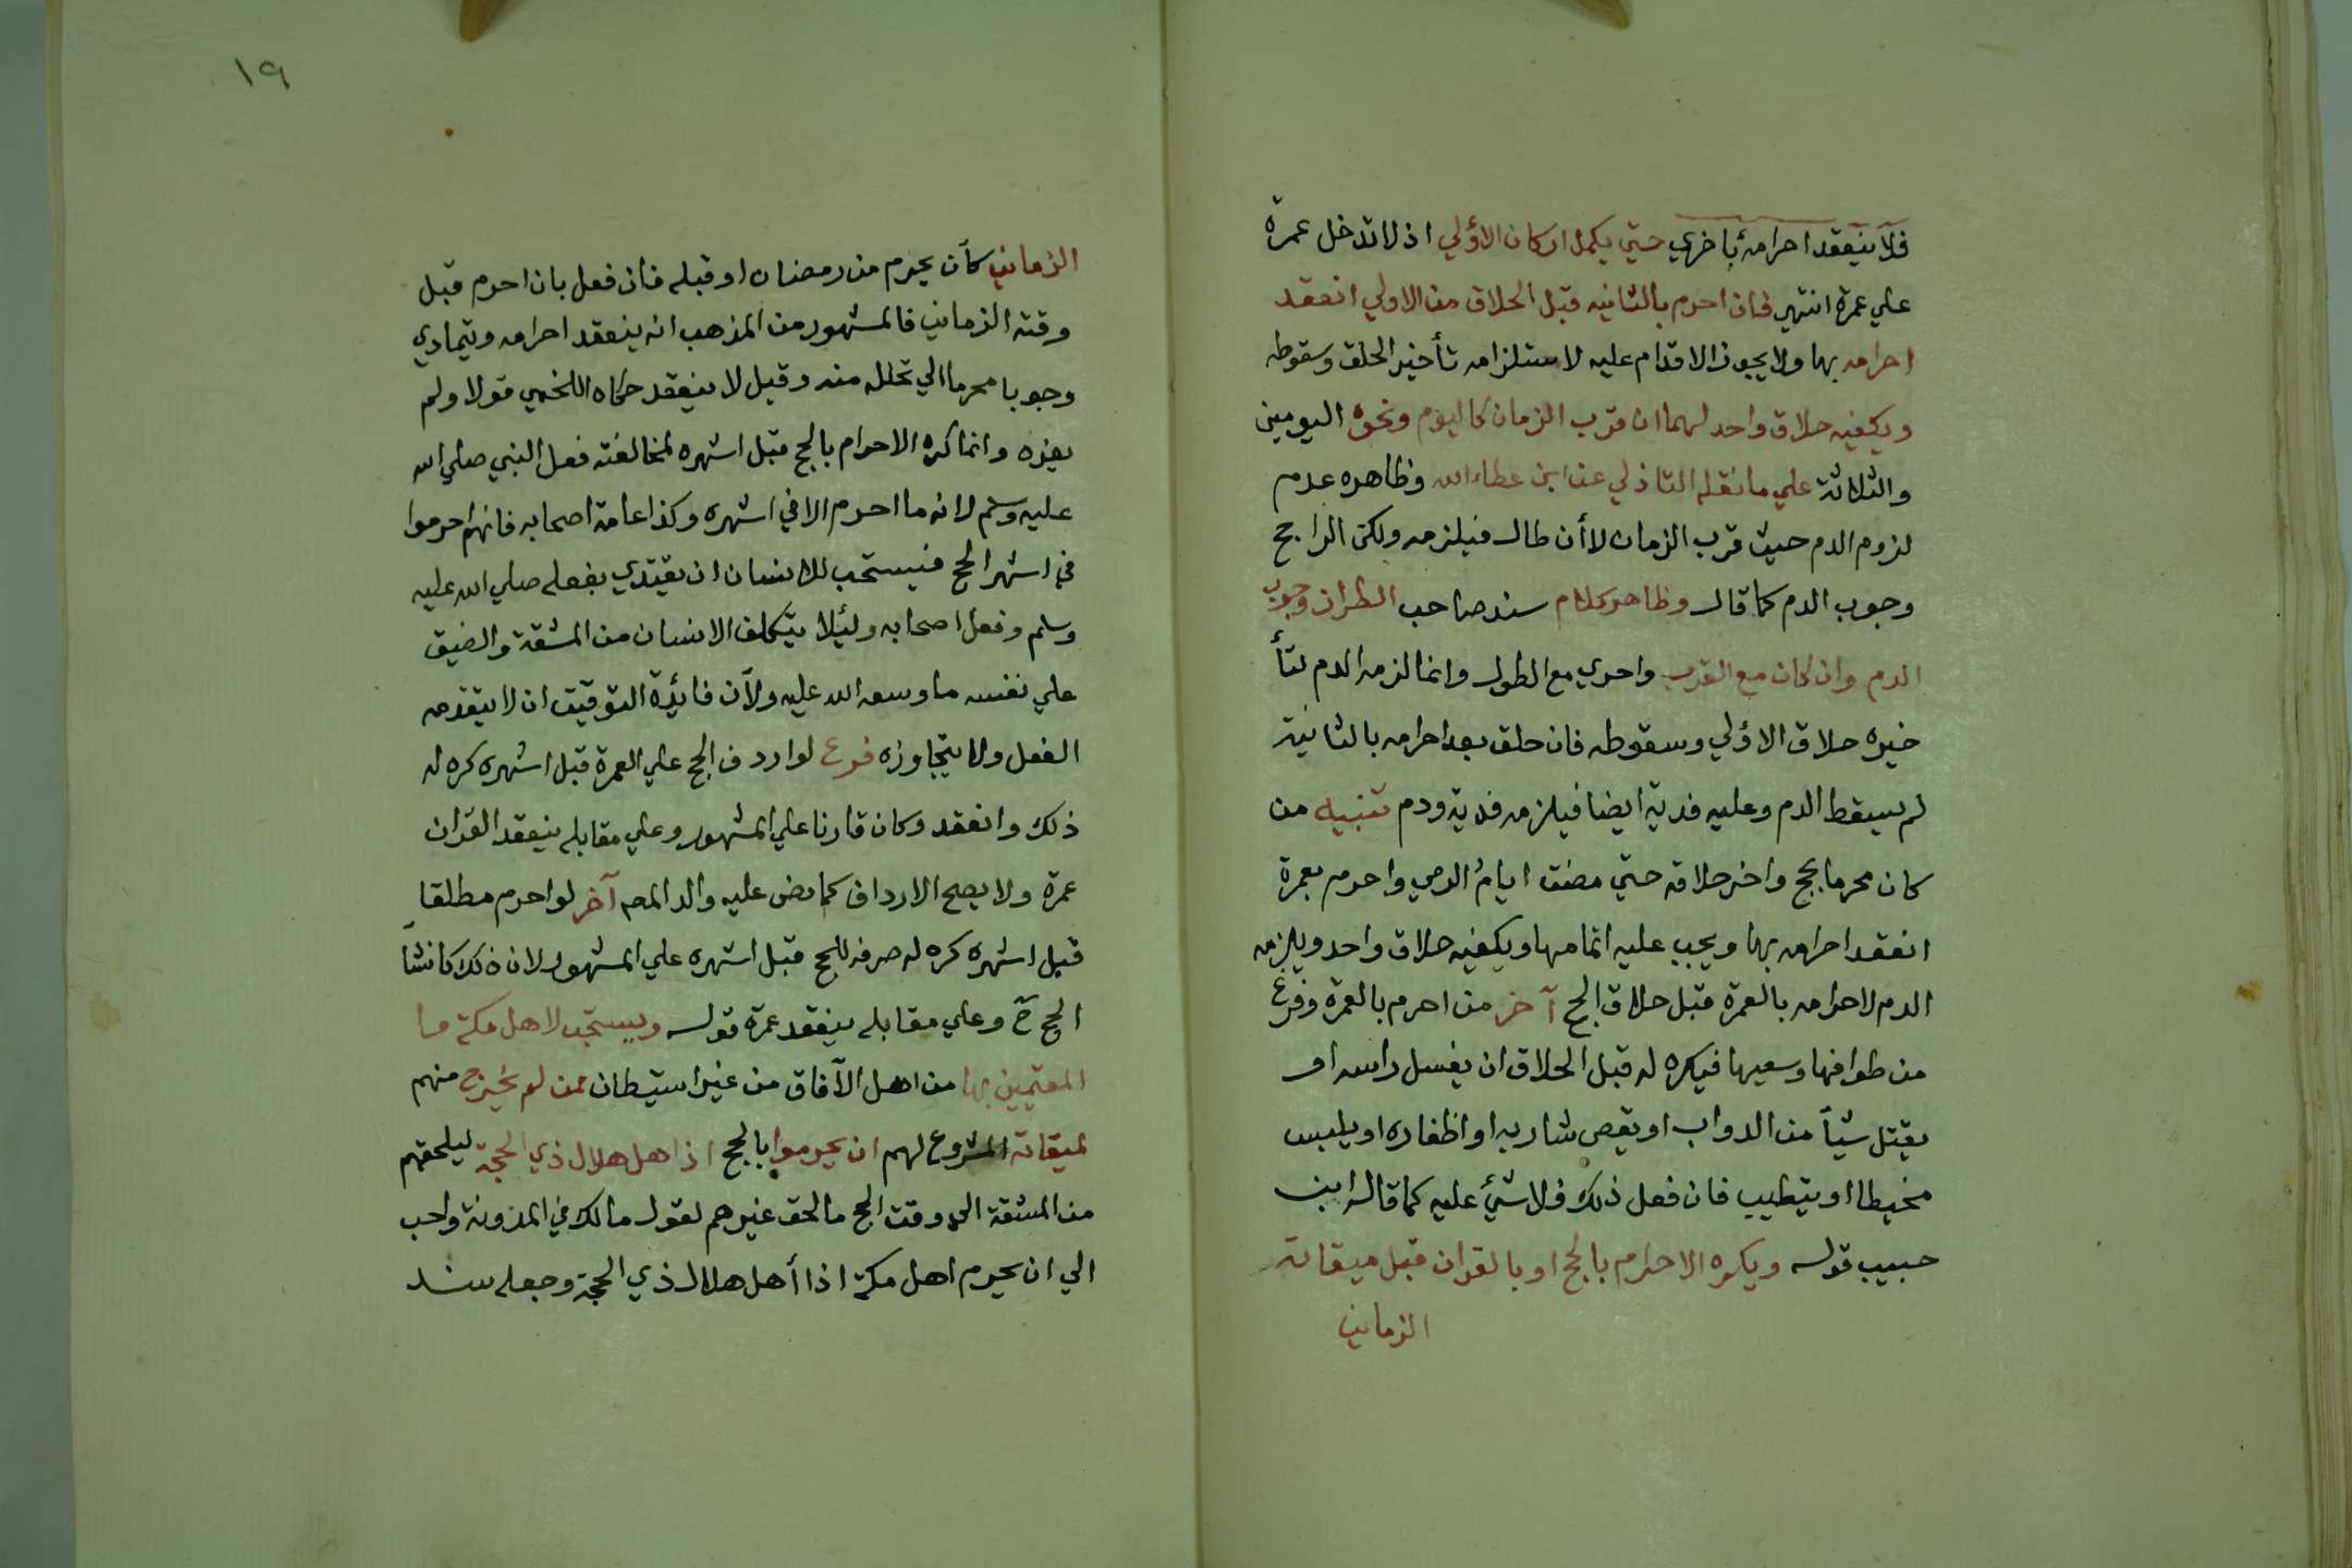 فلا ينعقد احرامه باخري حتي يكمل اركان الاولي اذ لا تدخل عمرة
علي عمرة انتهي فان احرم بالثانيه قبل الحلاق من الاولي انعقد
احرامه بها ولا يجوز الاقدام عليه لاستلزامه تأخير الحلق وسقوطه
ويكفيه حلاق واحد لهما ان قرب الزمان كاليوم ونحوه اليومين
والثلاثة علي ما نقله التاذلي عن ابن عطاء الله وظاهره عدم
لزوم الدم حيث قرب الزمان لا أن طال فيلزمه ولكن الراجح
وجوب الدم كما قال وظاهر كلام سند صاحب الطراز وجوب
الدم وان كان مع القرب واحري مع الطول وانما لزمه الدم لتأ
خيره حلاق الاولي وسقوطه فان حلق بعد احرامه بالثانية
لم يسقط الدم وعليه فدية ايضا فيلزمه فدية ودم تنبيه من
كان محرما بحج واخر حلاقه حتي مضت ايام الرمي واحرم بعمرة
انعقد احرامه بها ويجب عليه اتمامها ويكفيه حلاق واحد ويلزمه
الدم لاحرامه بالعمرة قبل حلاق الحج آخر من احرم بالعمرة وفرغ
من طوافها وسعيها فيكره له قبل الحلاق ان يغسل راسه او
يقتل شيأ من الدواب او يقص شاربه او اظفاره او يلبس
مخيطا او يتطيب فان فعل ذلك فلا شيئ عليه كما قاله ابن
حبيب قوله ويكره الاحرام بالحج او بالقران قبل ميقاته
الزماني
١٩
الزماني كأن يحرم من رمضان او قبله فان فعل بان احرم قبل
وقته الزماني فالمشهور من المذهب انه ينعقد احرامه ويتمادي
وجوبا محرما الي تحلله منه وقيل لا ينعقد حكاه اللخمي قولا ولم
يعزه وانما كره الاحرام بالحج قبل اشهره لمخالفته فعل النبي صلي الله
عليه وسلم لانه ما احرم الا في اشهره وكذا عامة اصحابه فانهم احرموا
في اشهر الحج فيستحب للانسان ان يقتدي بفعله صلي الله عليه
وسلم وفعل اصحابه ولئلا يتكلف الانسان من المشقة والضيق
علي نفسه ما وسعه الله عليه ولأن فائدة التوقيت ان لا يتقدمه
الفعل ولا يتجاوزه فرع لو اردف الحج علي العمرة قبل اشهره كره له
ذلك وانعقد وكان قارنا علي المشهور وعلي مقابله ينعقد القران
عمرة ولا يصح الارداف كما نص عليه والد المص آخر لو احرم مطلقا
قبل اشهره كره له صرفه للحج قبل اشهره علي المشهور لان ذلك كانشأ
الحج ح وعلي مقابله ينعقد عمرة قوله ويستحب لاهل مكة و
المقيمين بها من اهل الآفاق من غير استيطان ممن لم يخرج منهم
لميقاته المشروع لهم ان يحرموا بالحج اذا هل هلال ذي الحجة ليلحقهم
من المشقة الي وقت الحج ما لحق غيرهم لقول مالك في المدونة واحب
الي ان يحرم اهل مكة اذا أهل هلال ذي الحجة وجعله سند